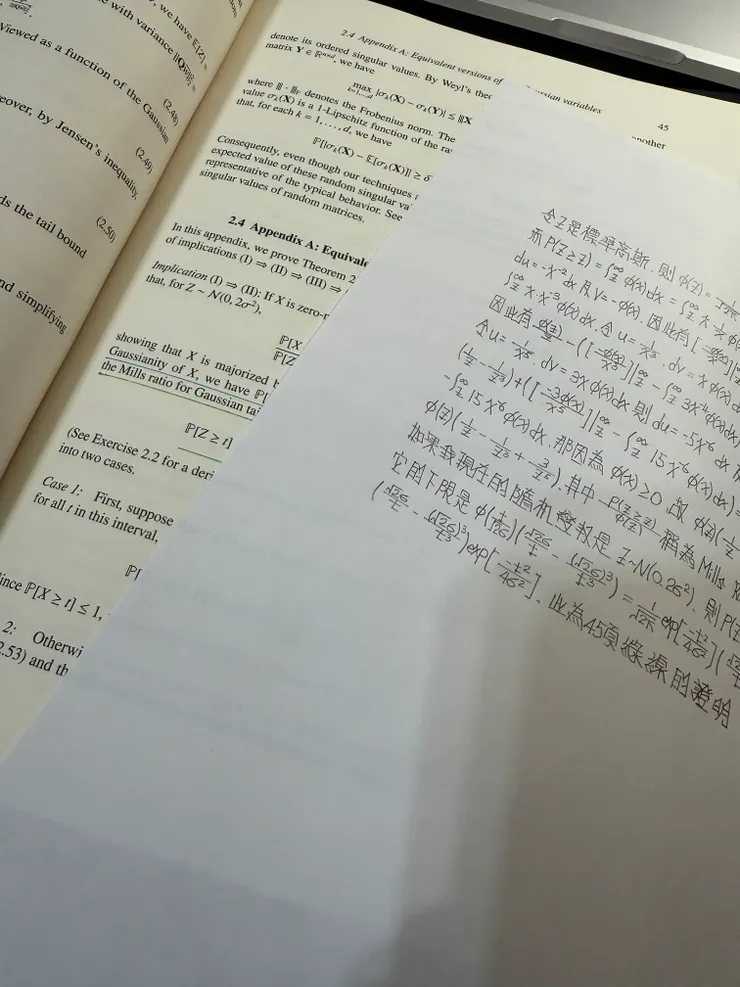 , we have 𝔼[Z] =
e with variance |||Q|||
Viewed as a function of the Gaussian
(2.48)
eover, by Jensen's inequality,
(2.49)
ds the tail bound
(2.50)
nd simplifying
2.4 Appendix A: Equivalent versions of
ussian variables
45
denote its ordered singular values. By Weyl's theo
nother
matrix Y ∈ ℝ^{n×d}, we have
max_{k=1,...,d} |σ_k(X) − σ_k(Y)| ≤ |||X
where ||| · |||_F denotes the Frobenius norm. The
value σ_k(X) is a 1-Lipschitz function of the ra
that, for each k = 1, . . . , d, we have
ℙ[|σ_k(X) − 𝔼[σ_k(X)]| ≥ δ
Consequently, even though our techniques
expected value of these random singular va
representative of the typical behavior. See
singular values of random matrices.
2.4 Appendix A: Equivale
In this appendix, we prove Theorem 2
of implications (I) ⇒ (II) ⇒ (III) ⇒
Implication (I) ⇒ (II): If X is zero-
that, for Z ∼ N(0, 2σ²),
ℙ[X
ℙ[Z
showing that X is majorized
Gaussianity of X, we have ℙ[
the Mills ratio for Gaussian tai
ℙ[Z ≥ t]
(See Exercise 2.2 for a deri
into two cases.
Case 1: First, suppose
for all t in this interval,
ℙ[
ince ℙ[X ≥ t] ≤ 1,
2: Otherwi
2.53) and th
令Z是標準高斯, 則 ϕ(Z) =
而 P(Z≥z) = ∫_z^∞ ϕ(x)dx = ∫_z^∞ x 1/x ϕ
du = -x^{-2}dx 及 V = -ϕ(x). 因此有
∫_z^∞ x x^{-3} ϕ(x)dx. 令 u = 1/x^3, dv = xϕ(x)d
因此有 ϕ(z)/z - ([-ϕ(x)/x^3]|_z^∞ - ∫_z^∞ 3x^{-4}ϕ(x)dx)
令 u = 1/x^5, dv = 3xϕ(x)dx 則 du = -5x^{-6}dx
(1/z - 1/z^3) + ([-3ϕ(x)/x^5]|_z^∞ - ∫_z^∞ 15x^{-6}ϕ(x)dx) =
- ∫_z^∞ 15x^{-6}ϕ(x)dx. 那因為 ϕ(x)≥0, 故 ϕ(z)(1/z
ϕ(z)(1/z - 1/z^3 + 3/z^5). 其中 P(Z≥z)/ϕ(z) 稱為 Mills
如果我現在的隨機變數是 Z~N(0,2σ²), 則 P(Z
它的下限是 ϕ(t/√2σ)(√2σ/t - (√2σ)^3/t^3) = 1/√2π exp[-t²/4σ²](√2σ/t
(√2σ/t - (√2σ)^3/t^3)exp[-t²/4σ²]. 此為45頁綠線的證明